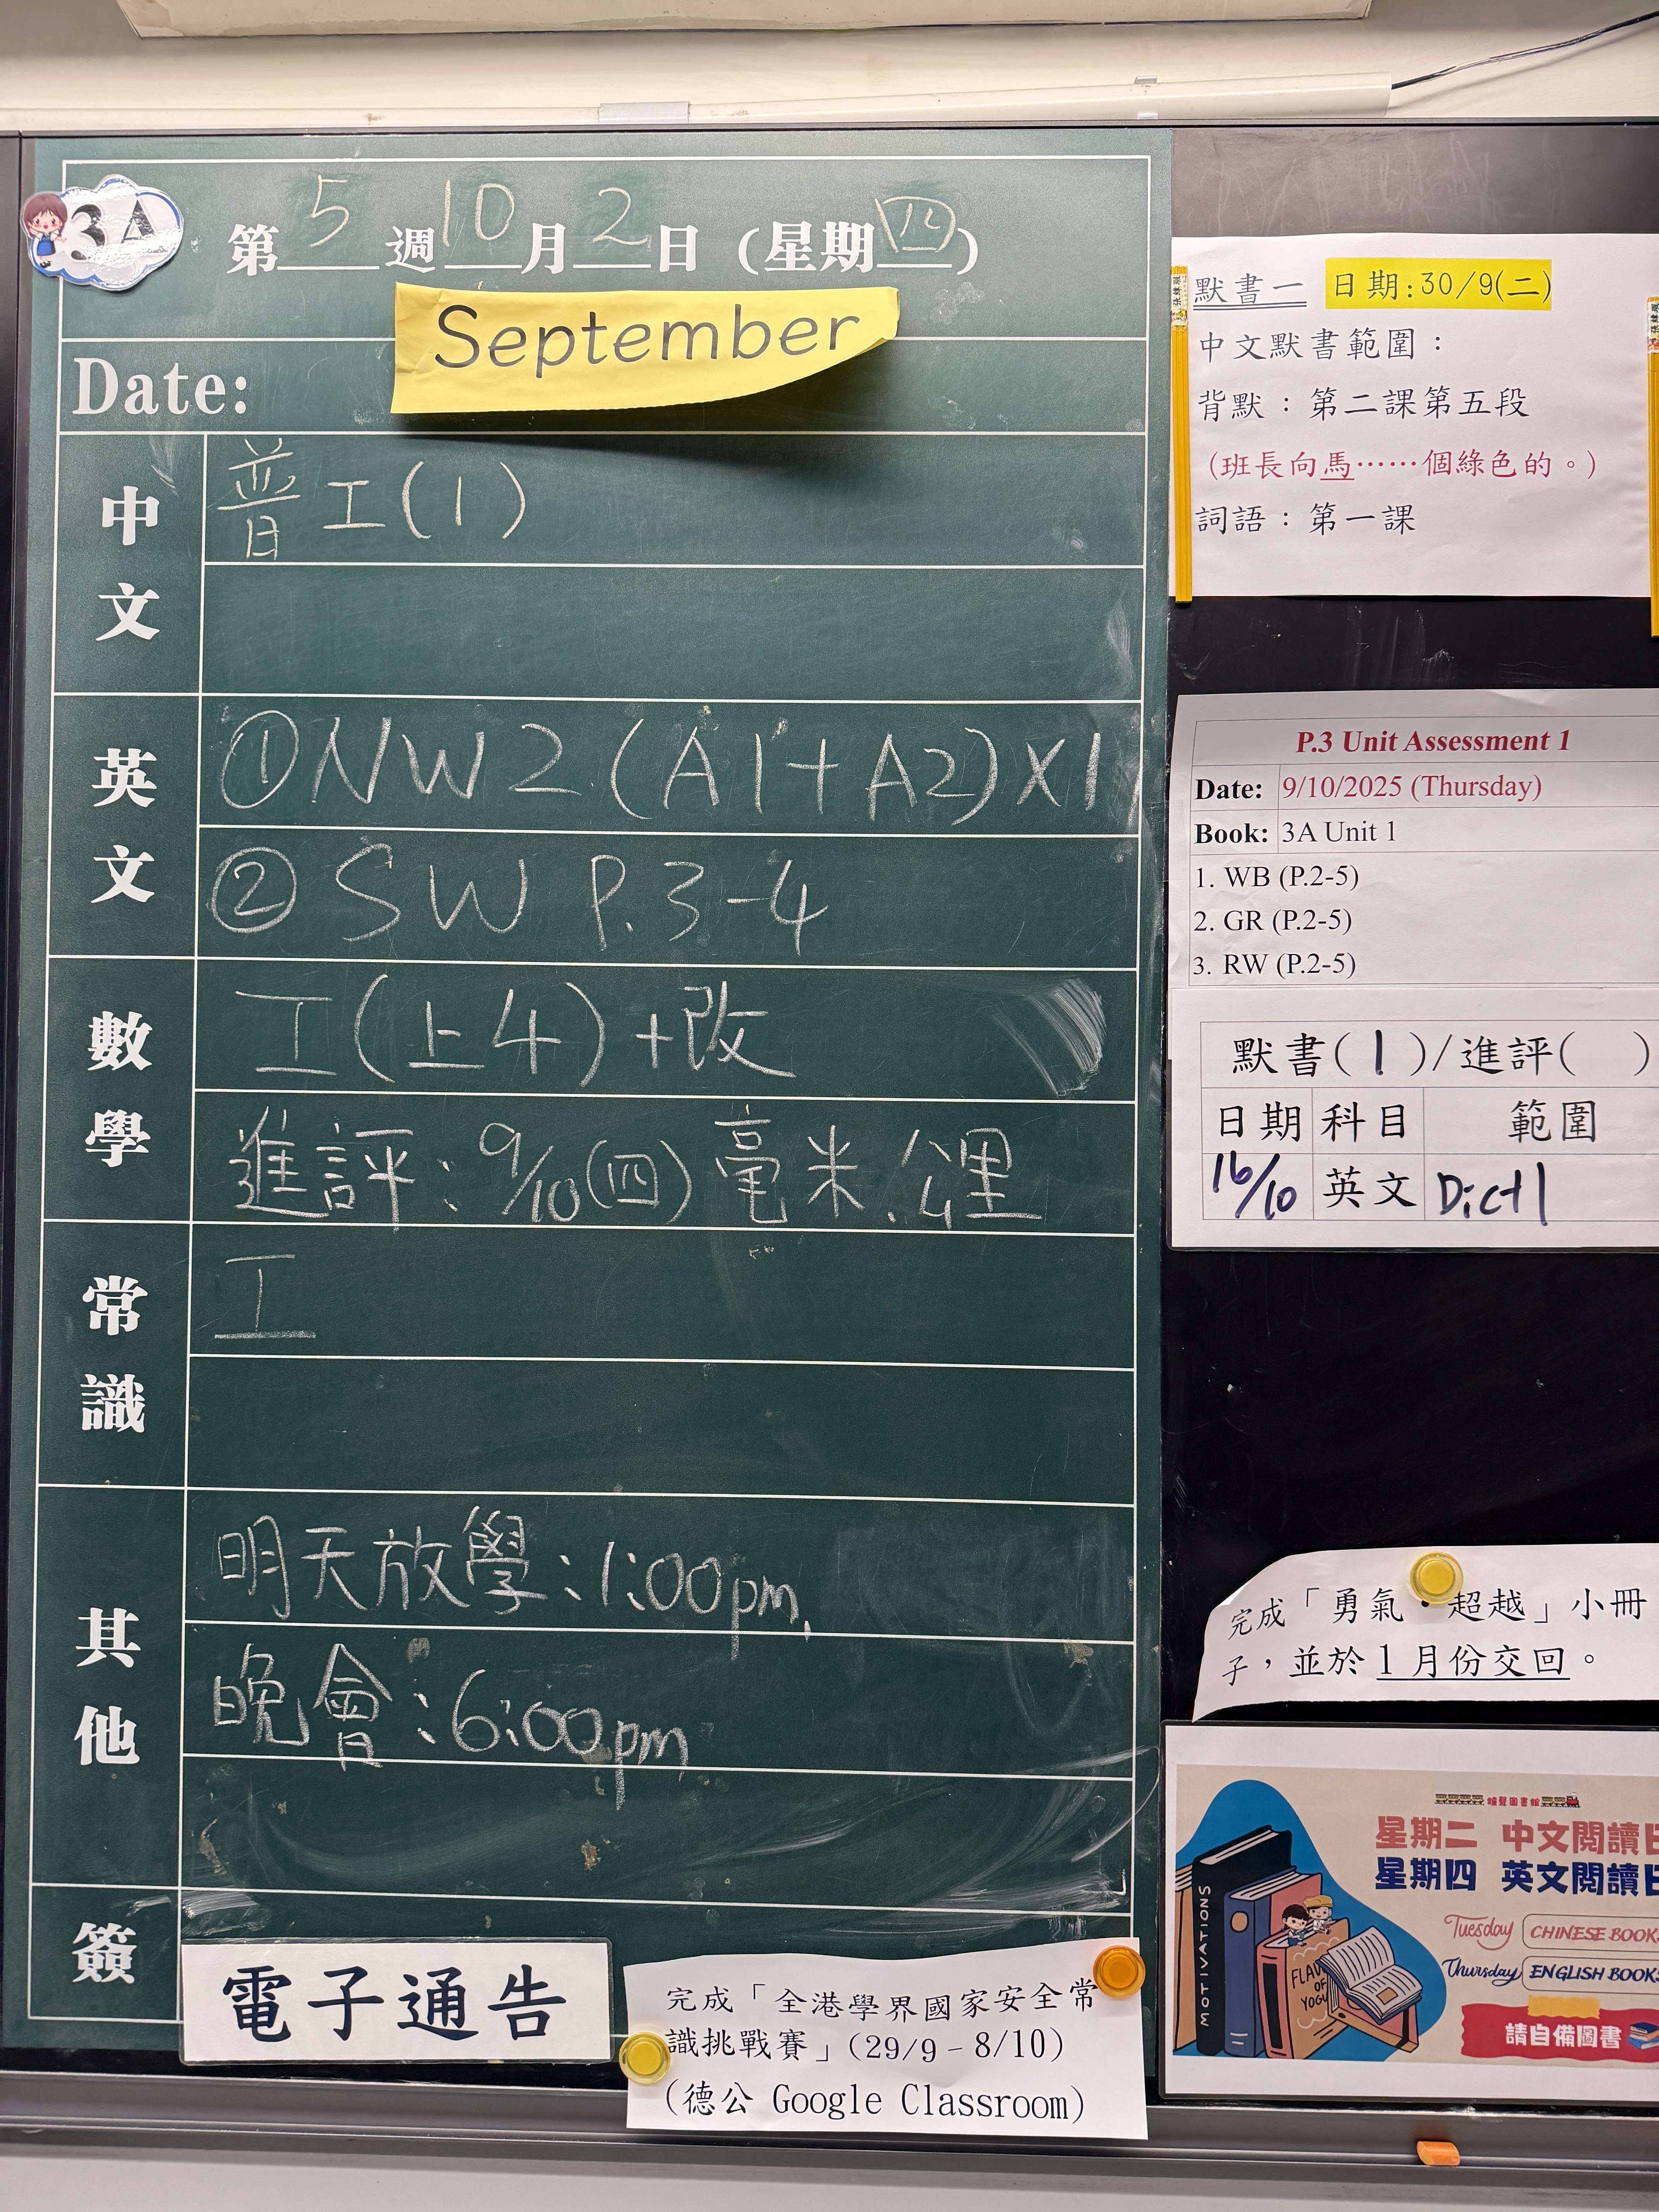 3A
第5週10月2日(星期四)
September
Date:
中文
普工(1)
英文
①NW2(A1+A2)X1
②SW P.3-4
數學
工(上4)+改
進評:9/10(四)毫米、公里
常識
工
其他
明天放學:1:00pm
晚會:6:00pm
簽
電子通告
完成「全港學界國家安全常
識挑戰賽」(29/9 - 8/10)
(德公 Google Classroom)
默書一 日期:30/9(二)
中文默書範圍:
背默:第二課第五段
(班長向馬……個綠色的。)
詞語:第一課
P.3 Unit Assessment 1
Date: 9/10/2025 (Thursday)
Book: 3A Unit 1
1. WB (P.2-5)
2. GR (P.2-5)
3. RW (P.2-5)
默書(1)/進評( )
日期 科目 範圍
16/10 英文 Dict1
完成「勇氣・超越」小冊
子,並於1月份交回。
星期二 中文閱讀日
星期四 英文閱讀日
Tuesday CHINESE BOOK
Thursday ENGLISH BOOKS
請自備圖書
MOTIVATIONS
OF